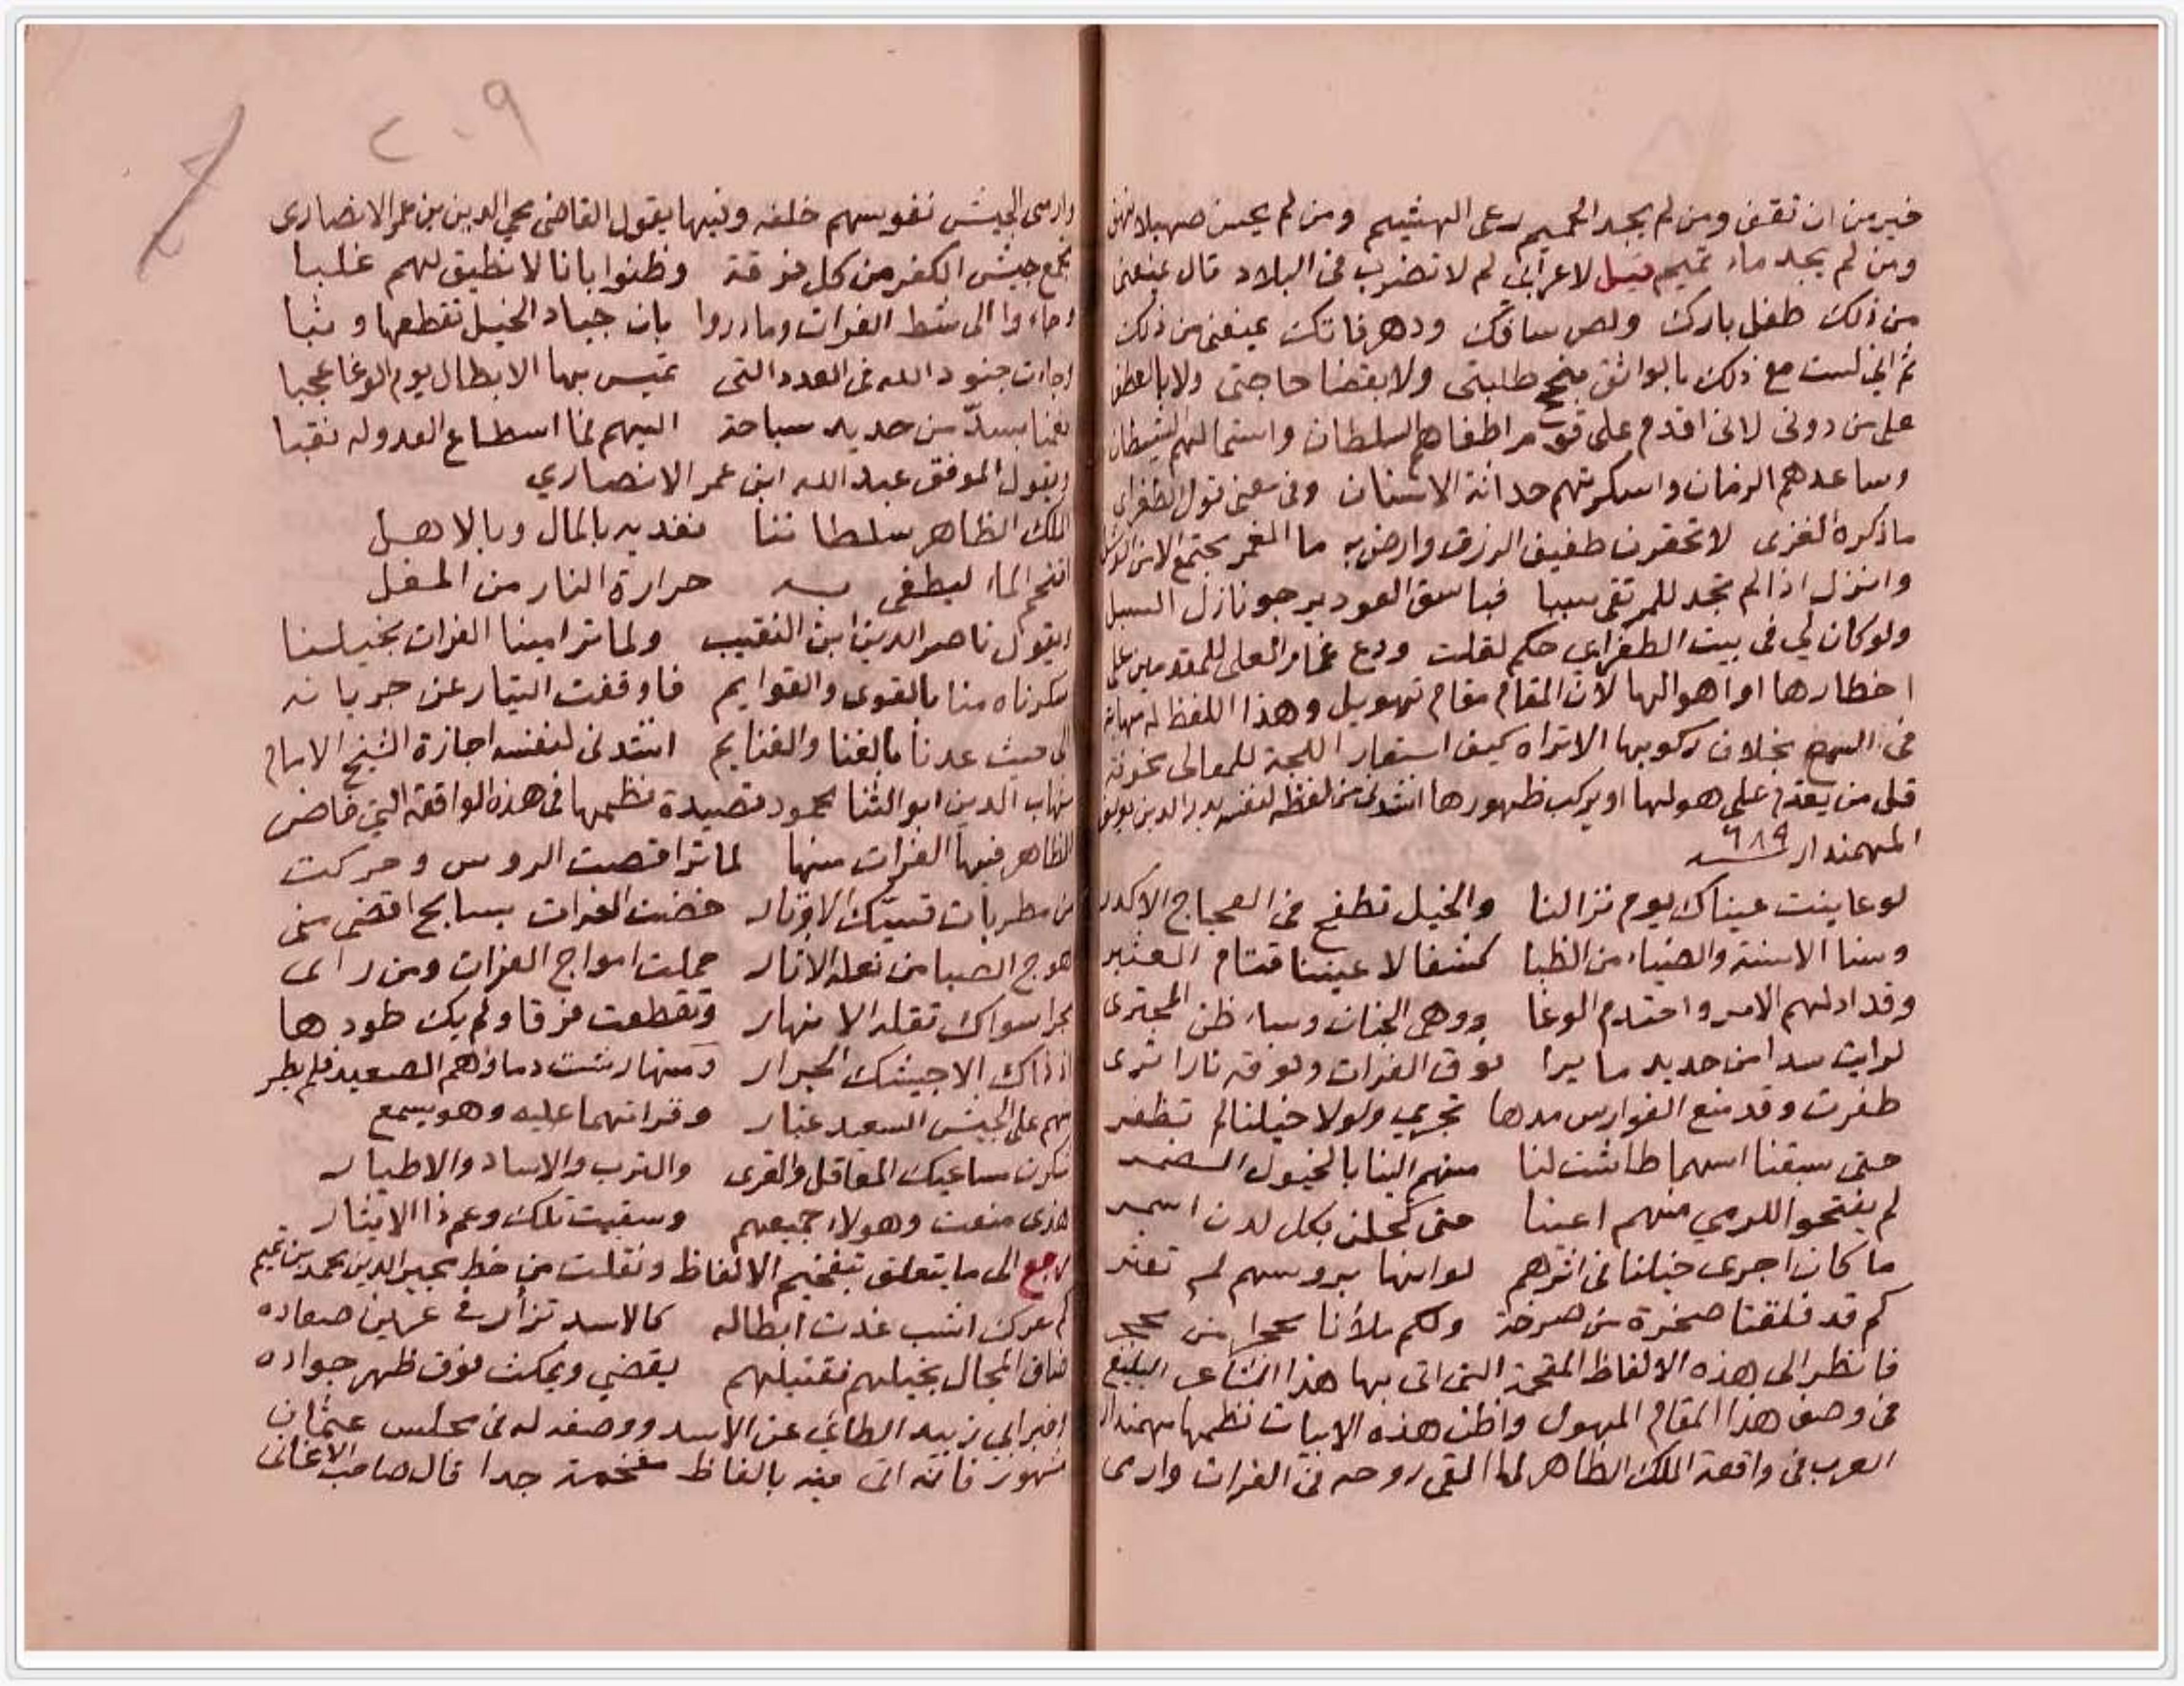 خير من ان تقف ومن لم يجد الحميم رعى الهشيم ومن لم يحسن صهيلا نهق
ومن لم يجد ماء تيمم قيل لاعرابي لم لا تضرب في البلاد قال يمنعني
من ذلك طفل بارك ولص سافك ودهر فاتك يمنعني من ذلك
ثم اني لست مع ذلك بالواثق بنجح طلبتي ولا بقضا حاجتي ولا بالعطف
على من دوني لاني اقدم على قوم اطغاهم السلطان واستمالهم الشيطان
وساعدهم الزمان واسكرتهم حداثة الاسنان وفي معنى قول الطغراي
ما ذكره الغزي لا تحقرن طفيف الرزق وارض به ما الغمر يجتمع الا من
وانزل اذا لم تجد للمرتقى سببا فباسق العود يرجو نازل السبل
ولو كان لي في بيت الطغراي حكم لقلت ودع غمار العلى للمقدمين على
اخطارها او اهوالها لان المقام مقام تهويل وهذا اللفظ له مهابة
في السمع بخلاف ركوبها الا تراه كيف استعار اللجة للمعالي
قل من يقدم على هولها او يركب ظهورها انشدني من لفظه لنفسه بدر الدين يوسف
المهمندار ٦٨٩
لو عاينت عيناك يوم نزالنا والخيل تطفح في العجاج الاكدر
وسنا الاسنة والضياء من الظبا كشفا لاعيننا قتام العثير
وقد ادلهم الامر واحتدم الوغا ووهى الجنان وساء ظن المجتري
لرايت سدا من حديد ما يرا فوق الفرات وفوقه نارا ترى
طفرت وقد منع الفوارس مدها تجري ولولا خيلنا لم تطفر
حتى سبقنا اسهما طاشت لنا منهم الينا بالخيول الضمر
لم يفتحوا للرمي منهم اعينا حتى كحلن بكل لدن اسمر
ما كان اجرى خيلنا في اثرهم لو انها بروسهم لم تعثر
كم قد فلقنا صخرة من صرخة ولكم ملأنا محجرا من محجر
فانظر الى هذه الالفاظ المفخمة التي اتى بها هذا الشاعر البليغ
في وصف هذا المقام المهول واظن هذه الابيات نظمها مهمندار
العرب في واقعة الملك الظاهر لما القى روحه في الفرات وارمى
٢٠٩
وارمى الجيش نفوسهم خلفه وفيها يقول القاضي محي الدين بن عمر الانصاري
تجمع جيش الكفر من كل فرقة وظنوا بانا لا نطيق لهم غلبا
وجاءوا الى شط الفرات وما دروا بان جياد الخيل تقطعها وثبا
وجاءت جنود الله في العدد التي تميس بها الابطال يوم الوغا عجبا
فعمنا بسد من حديد سباحة اليهم فما اسطاع العدو له نقبا
ويقول الموفق عبد الله ابن عمر الانصاري
الملك الظاهر سلطاننا نفديه بالمال وبالاهل
اقتحم الماء ليطفي به حرارة النار من المغل
ويقول ناصر الدين ابن النقيب ولما ترامينا الفرات بخيلنا
سكرناه منا بالقوى والقوايم فاوقفت التيار عن جريانه
الى حيث عدنا بالغنا والغنايم انشدني لنفسه اجازة الشيخ الامام
شهاب الدين ابو الثنا محمود قصيدة نظمها في هذه الواقعة التي خاض
الظاهر فيها الفرات منها لما تراقصت الروس وحركت
من مطربات قسيك الاوتار خضت الفرات بسابح اقصى منى
هوج الصبا من نعله الاثار حملت امواج الفرات ومن راى
بحرا سواك تقله الانهار وتقطعت فرقا ولم يك طودها
اذ ذاك الا جيشك الجرار ومنها رشت دماؤهم الصعيد فلم يطر
منهم على الجيش السعيد غبار وقراتهما عليه وهو يسمع
شكرت مساعيك المعاقل والقرى والترب والاساد والاطيار
هذي منعت وهولاء حميتهم وسقيت تلك وعم ذا الايثار
ارجع الى ما يتعلق بتفخيم الالفاظ ونقلت من خط مجير الدين محمد بن تميم
كم معرك اشب غدت ابطاله كالاسد تزأر في عرين صعاده
ضاق المجال بخيلهم فقتيلهم يقضي ويمكث فوق ظهر جواده
اخبر ابي زبيد الطائي عن الاسد ووصفه له في مجلس عثمان
مشهور فانه اتى فيه بالفاظ مفخمة جدا قال صاحب الاغاني